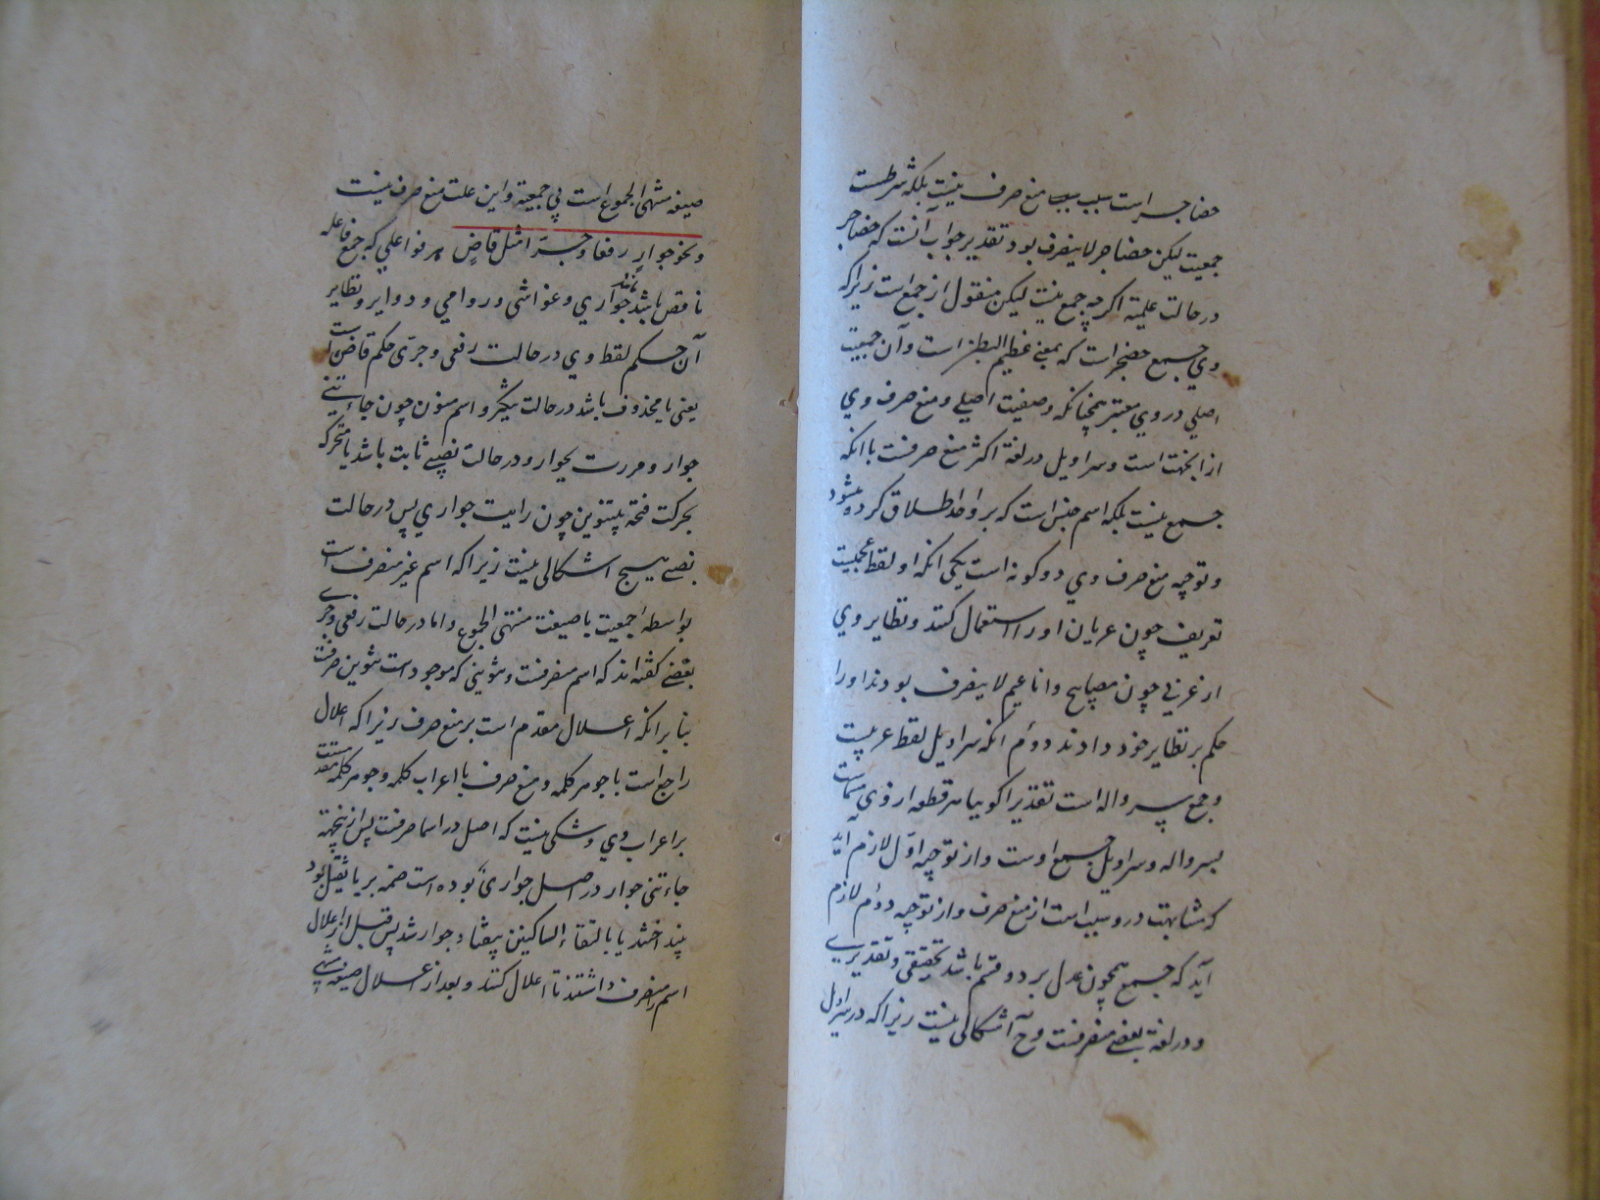 حضاجر است سبب منع صرف نیست بلکه شرطست
جمعیت لیکن حضاجر لا ینصرف بود تقدیر جواب آنست که حضاجر
در حالت علمیة اگرچه جمع نیست لیکن منقول از جمع است زیراکه
وی جمع حضجر است که بمعنی عظیم البطن است و آن جمعیت
اصلی در وی معتبر همچنانکه وصفیت اصلی و منع صرف وی
ازاینجهت است و سراویل در لغة اکثر منع صرفست باآنکه
جمع نیست بلکه اسم جنس است که بر واحد اطلاق کرده میشود
و توجیه منع صرف وی دو گونه است یکی آنکه او لفظ عجمیت
تعریف چون عریان او را استعمال کنند و نظایر وی
از عربی چون مصابیح و اناعیم لا ینصرف بودند او را
حکم بر نظایر خود دادند دوم آنکه سراویل لفظ عربیست
و جمع سرواله است تقدیرا گوییا هر قطعه از وی
بسرواله و سراویل جمع اوست و از توجیه اول لازم
که مشابهت در و سبب است از منع صرف و از توجیه دوم لازم
آید که جمع همچون عدل بر دو قسم باشد تحقیقی و تقدیری
و در لغة بعضی منصرفست و ح اشکالی نیست زیراکه در سراویل
صیغه منتهی الجموع است بی جمعیة و این علت منع صرف نیست
و نحو جوار رفعا و جرّا مثل قاضٍ هر فواعلی که جمع فاعله
ناقص باشد مانند جواری و غواشی و روامی و دوایر و نظایر
آن حکم لفظ وی در حالت رفعی و جرّی حکم قاض است
یعنی یا محذوف باشد در حالت و اسم منون چون جاءتنی
جوار و مررت بجوار و در حالت نصبی ثابت باشد یا متحرکه
بحرکت فتحه بیتنوین چون رایت جواری پس در حالت
نصبی هیچ اشکالی نیست زیراکه اسم غیر منصرف است
بواسطه جمعیت با صیغت منتهی الجموع و اما در حالت رفعی و جری
بعضی گفته اند که اسم منصرفست و تنوینی که موجود است تنوین صرفست
بنا بر آنکه اعلال مقدم است بر منع صرف زیراکه اعلال
راجع است با جوهر کلمه و منع صرف با اعراب کلمه و جوهر کلمه
بر اعراب وی و شکی نیست که اصل در اسما صرفست پس ازینجهة
جاءتنی جوار در اصل جواریٌ بوده است ضمه بر یا ثقیل بود
بینداختند یا بالتقاء الساکنین بیفتاد جوار شد پس قبل از اعلال
اسم را منصرف داشتند تا اعلال کنند و بعد از اعلال صیغه